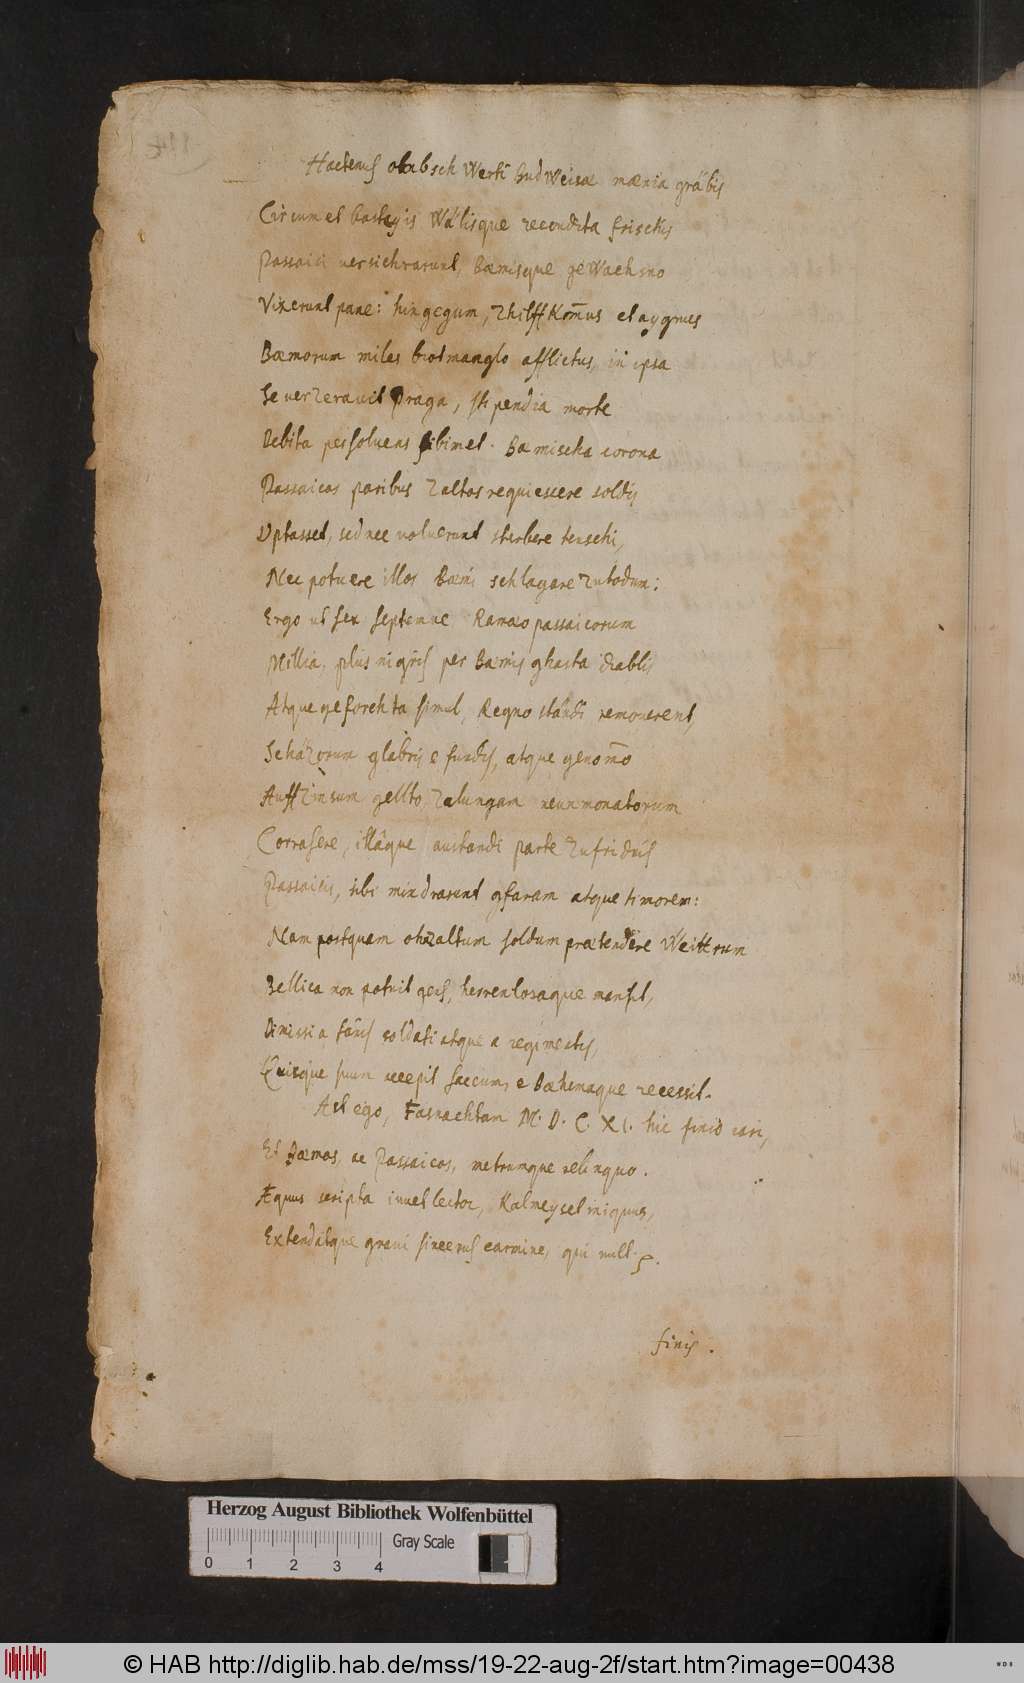 Hactenus obrbsch Werti Budweisæ mænia gräbis
Circum et bastegis Wälisque recondita frischis
Passaici versichrarunt, Bæmisque geWachsno
Vixerunt pane: hingegum, Zhilff Kom̄us et aygnus
Bæmorum miles brotmanglo afflictus, in ipsa
Se verzeravit Praga, stipendia morte
Debita persoluens sibimet. Bæmischa corona
Passaicos paribus Zaltos requiescere soldis
Optasset, sed nec voluerunt sterbere teuschi,
Nec potuere illos Bæmi schlagare Zutodum:
Ergo ut sex septemue Ramæo passaicorum
Millia, plus nigris per Bæmis ghasta diablis
Atque geforchta simul, Regno standi removerent,
Schäzorum glabris e fundis, atque genom̄o
Auff Zinsum gellto Zalungam neunmonatorum
Corrasere, illâque austandi parte Zufridnis
Passaicis, sibi mindrarunt gfaram atque timorem:
Nam postquam ohzaltum soldum prætendere Weittrum
Bellica non potuit gens, herrenlosaque mansit,
Dimissi a fānis soldati atque a regimentis,
Quisque suum accepit saccum, e Boehemaque recessit.
Ast ego, Fasnachtam M. D. C. XI. hic finio cari,
Et Bæmos, ac Passaicos, metrumque relinquo.
Æquus scripta iuvet lector, Kalmeyset iniquus,
Extendatque graui sincerus carmine, qui null.
finis.
Herzog August Bibliothek Wolfenbüttel
Gray Scale
0 1 2 3 4
© HAB http://diglib.hab.de/mss/19-22-aug-2f/start.htm?image=00438